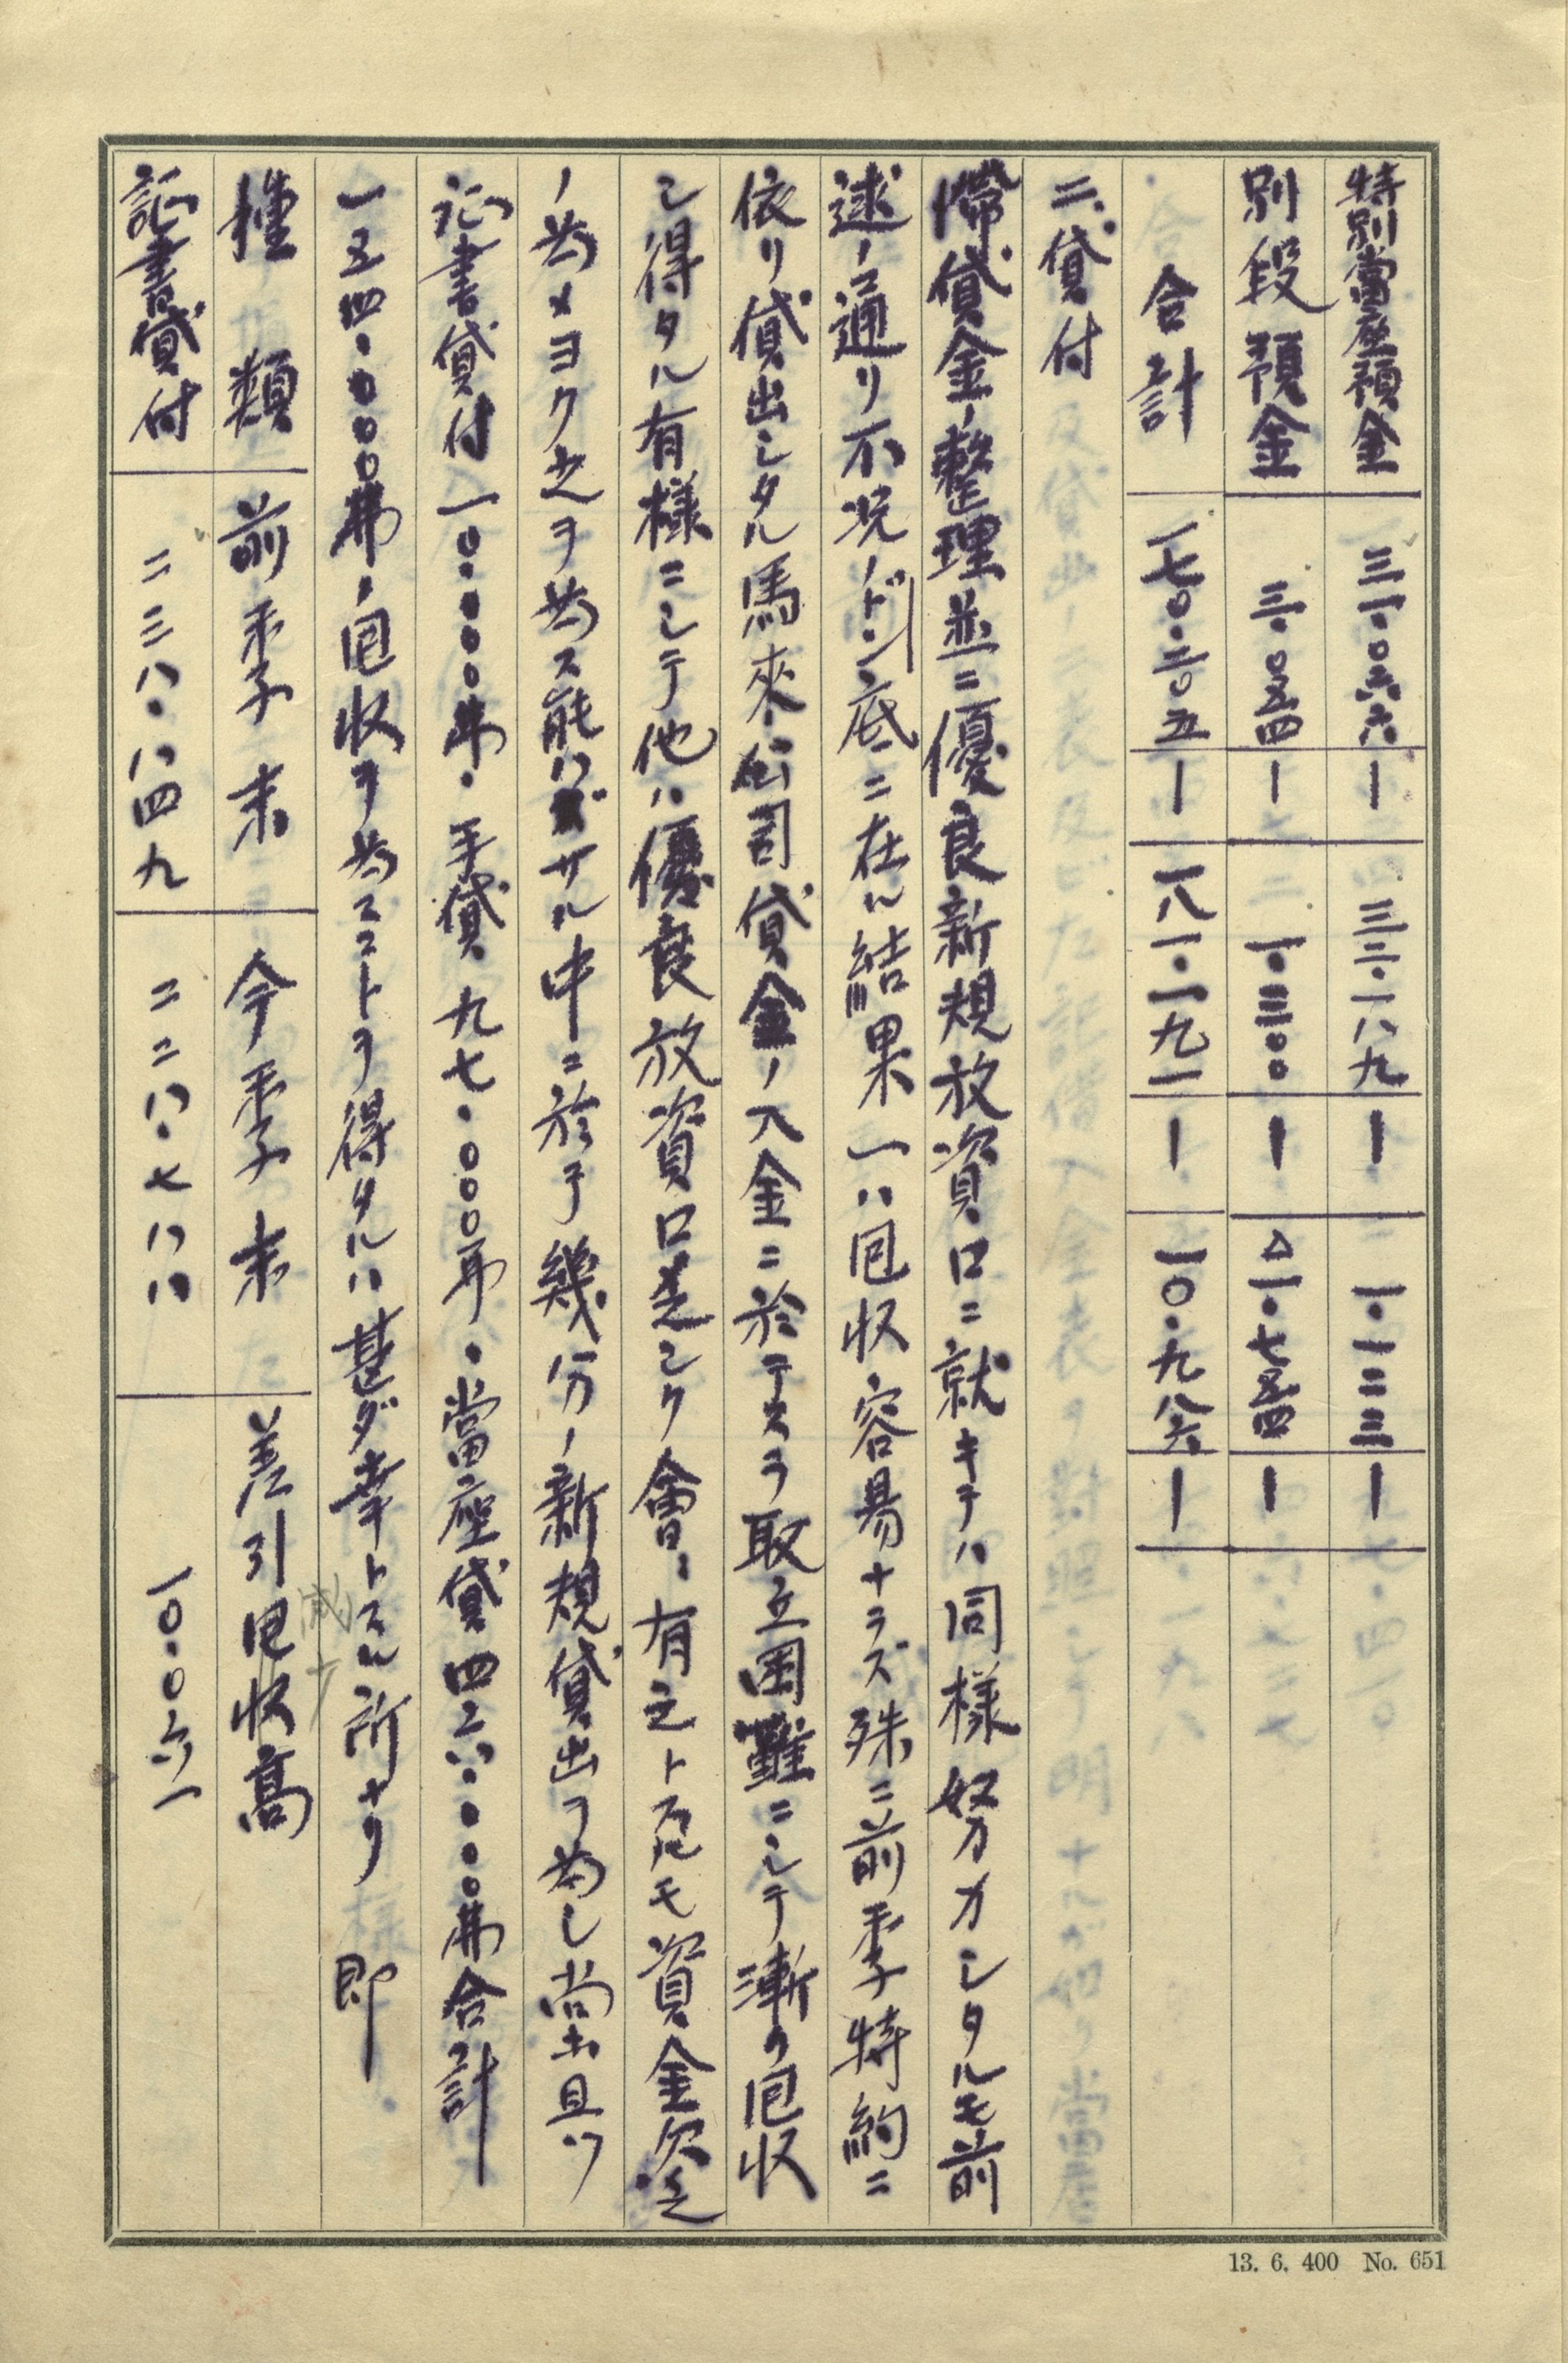 特別當座預金 三一.〇六六 ― 三二.一八九 ― 一.一二三 ―
別段預金 三.〇五四 ― 一.三〇〇 ― △一.七五四 ―
合計 一七〇.二〇五 ― 一八一.一九一 ― 一〇.九八六 ―
二.貸付
滯貸金ノ整理並ニ優良新規放資口ニ就キテハ同樣努力シタルモ前
述ノ通リ不況ノドン底ニ在ル結果一ハ囘收容易ナラズ殊ニ前季特約ニ
依リ貸出シタル馬來公司貸金ノ入金ニ於テスラ取立困難ニシテ漸ク囘收
シ得タル有樣ニシテ他ハ優良放資口乏シク會〻有之トスルモ資金欠乏
ノ為メヨク之ヲ為ス能ハザル中ニ於テ幾分ノ新規貸出ヲ為シ尚ホ且ツ
証書貸付一〇.〇〇〇弗.手貸九七.〇〇〇弗.當座貸四六.〇〇〇弗合計
一五四.〇〇〇弗ノ囘收ヲ為スコトヲ得タルハ甚ダ幸トスル所ナリ 即
種類 前季末 今季末 差引囘收高
証書貸付 二三八.八四九 二二八.七八八 一〇.〇六一
13. 6. 400 No. 651